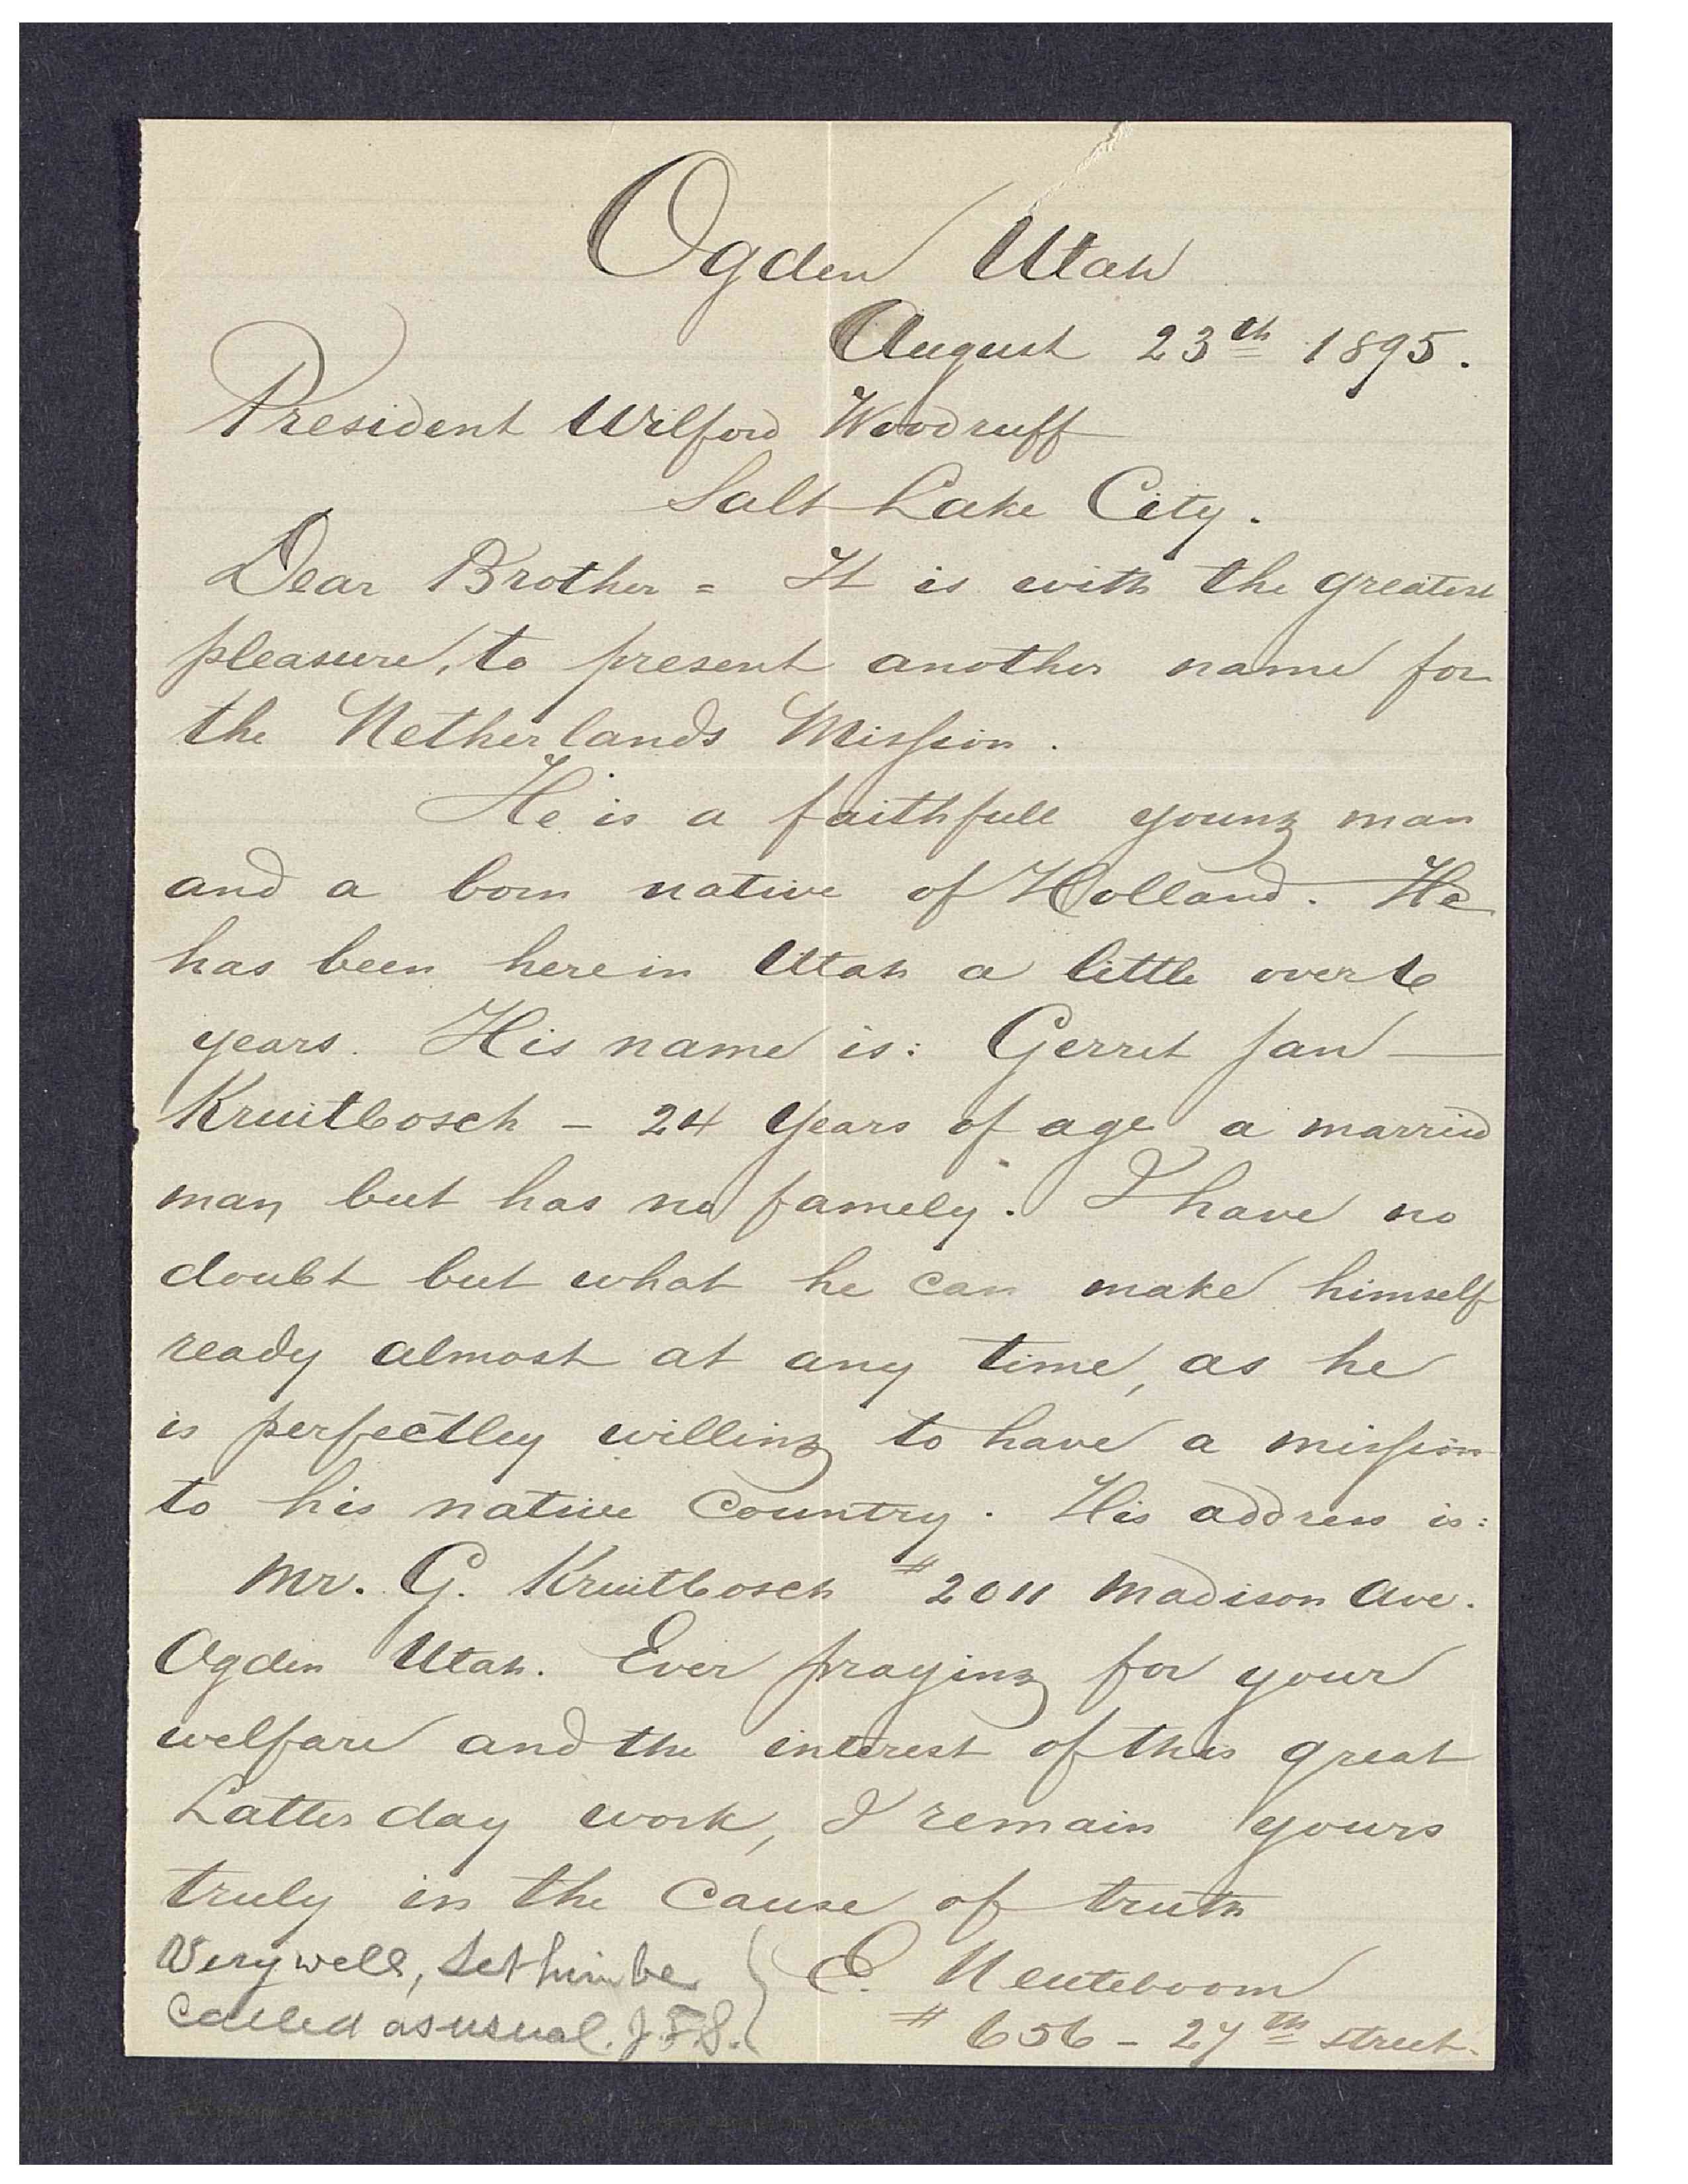 Ogden Utah
August 23th 1895.
President Wilford Woodruff
Salt Lake City.
Dear Brother = It is with the greatest
pleasure, to present another name for
the Netherlands Mission.
He is a faithfull young man
and a born native of Holland. He
has been here in Utah a little over 6
years. His name is: Gerret Jan —
Kruitbosch – 24 years of age a married
man but has no famely. I have no
doubt but what he can make himself
ready almost at any time, as he
is perfectley willing to have a mission
to his native country. His address is:
Mr. G. Kruitbosch #2011 Madison Ave.
Ogden Utah. Ever praying for your
welfare and the interest of this great
Latter day work, I remain yours
truly in the cause of truth
E. Neuteboom
# 656 – 27th street.
Very well, Let him be
called as usual. J. F. S.